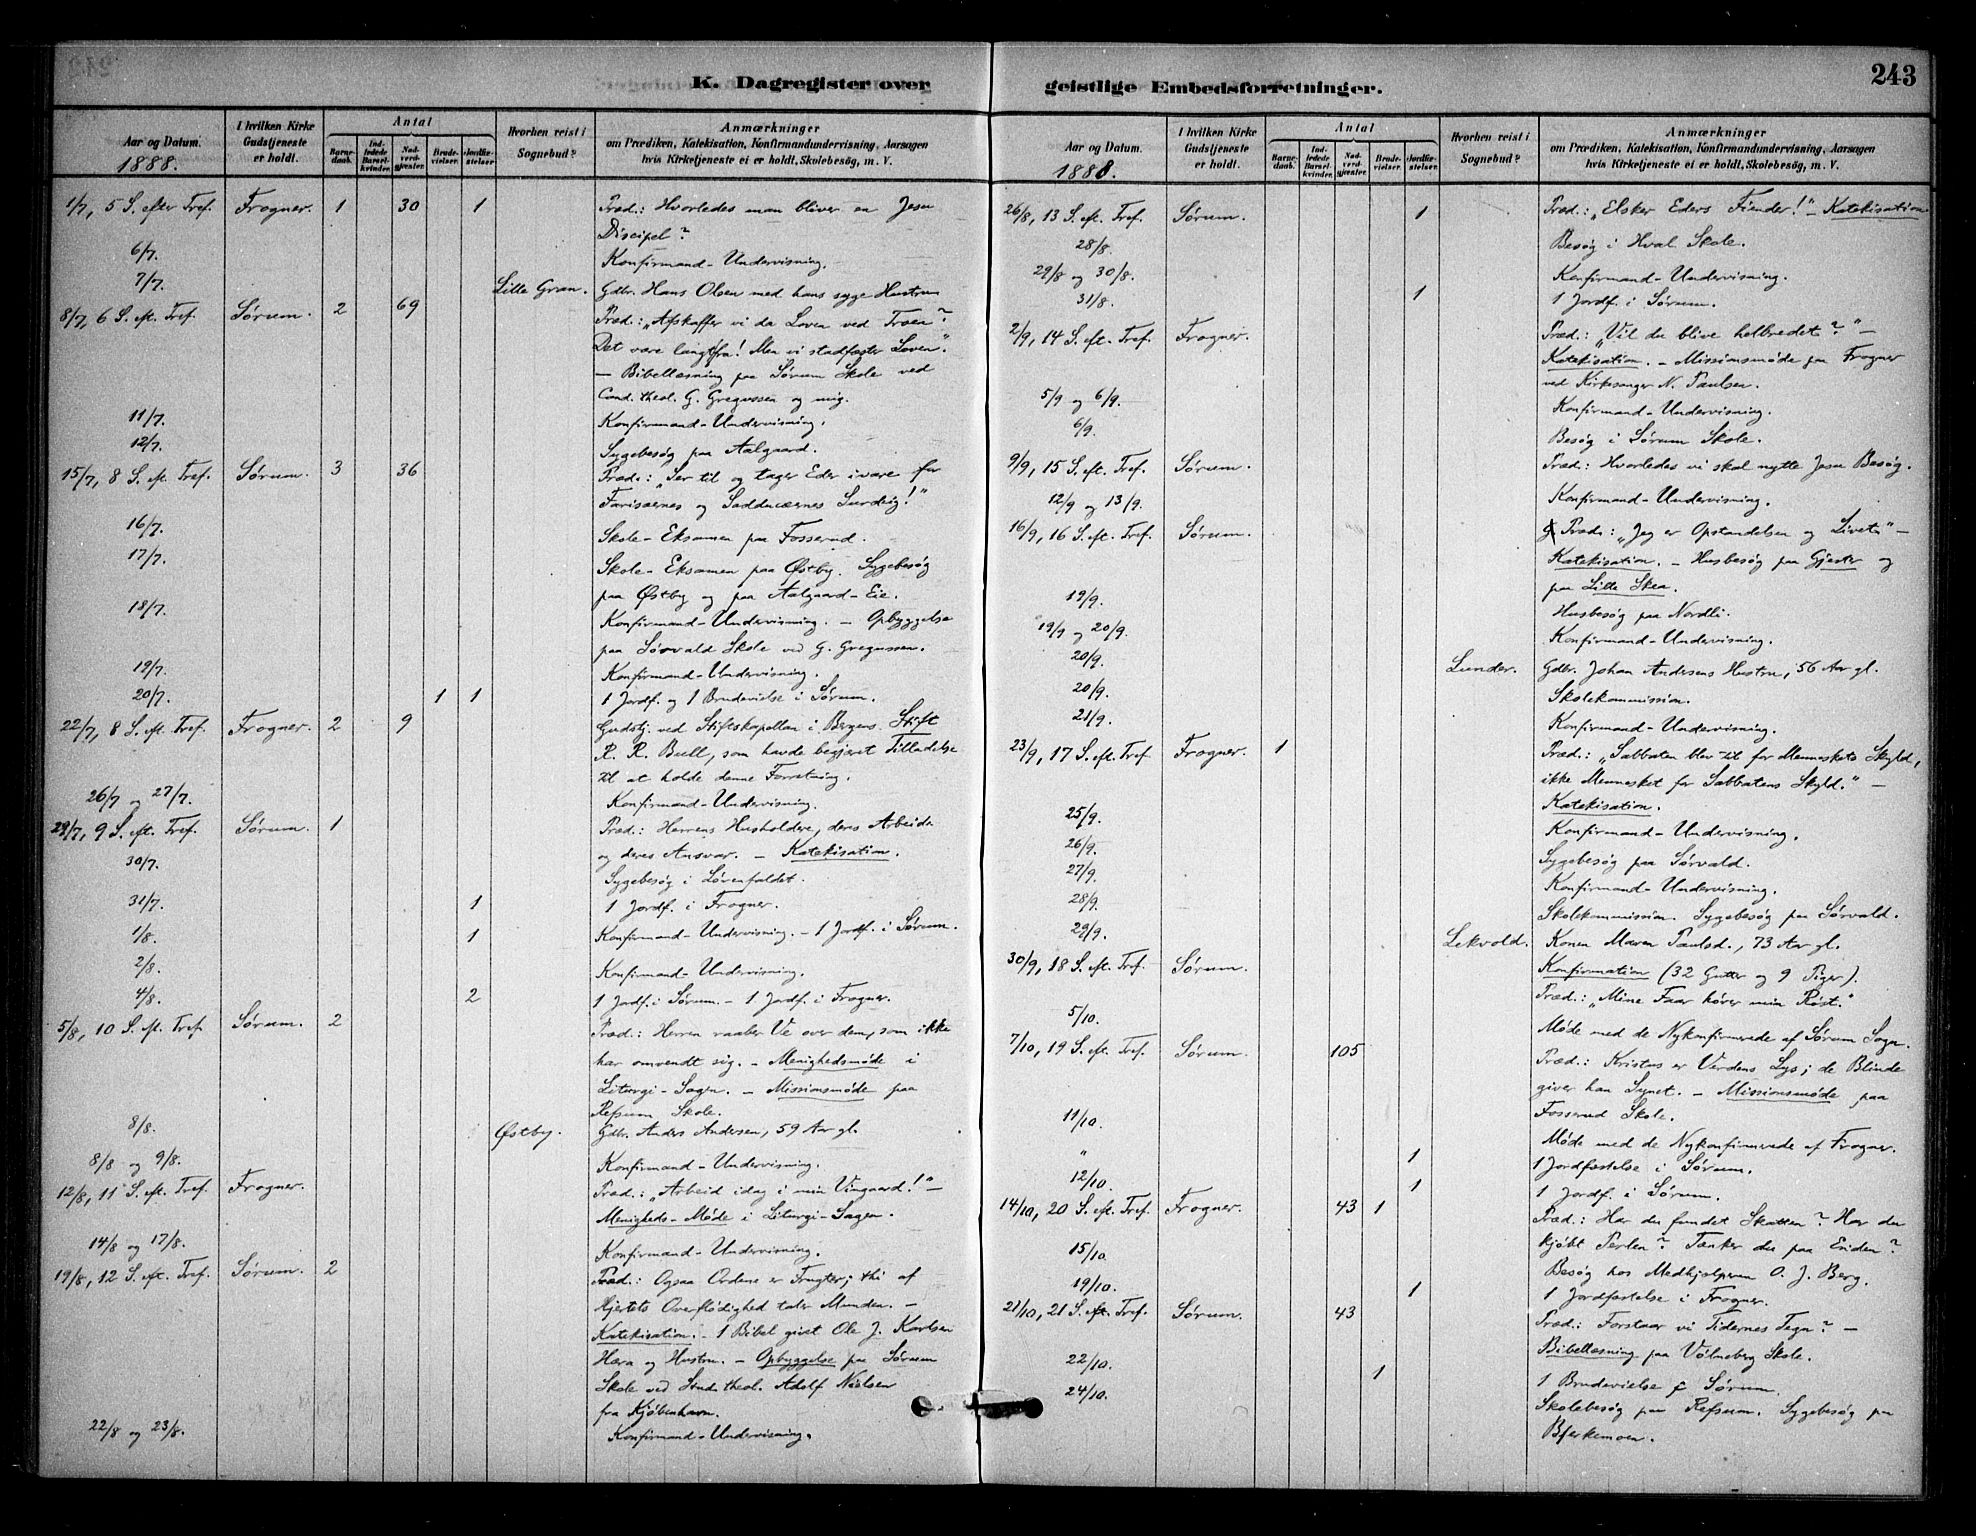 K. Dagregister over
Aar og Datum.
1888.
I hvilken Kirke Gudstjeneste er holdt.
Antal
Barnedaab.
Indledede Barselkvinder.
Nadverdgjæster.
Brudevielser.
Jordfæstelser.
Hvorhen reist i Sognebud?
Anmærkninger
om Prædiken, Katekisation, Konfirmandundervisning, Aarsagen
hvis Kirketjeneste ei er holdt, Skolebesøg, m. V.
1/7, 5 S. efter Tref. Frogner. 1 30 1 Præd.: Hvorledes man bliver en Jesu
Discipel?
6/7. Konfirmand-Undervisning.
7/7. Lille Gran. Gdbr. Hans Olsen med hans syge Hustru
8/7, 6 S. eft. Tref. Sørum. 2 69 Præd.: „Afskaffer vi da Loven ved Troen?
Det være langtfra! Men vi stadfæster Loven".
— Bibellæsning paa Sørum Skole ved
Cand. theol. G. Gregussen og mig.
11/7. Konfirmand-Undervisning.
12/7. Sygebesøg paa Aalgaard.
15/7, 8 S. eft. Tref. Sørum. 3 36 Præd.: „Ser til og tager Eder ivare for
Farisæernes og Sadducæernes Surdeig!"
16/7. Skole-Eksamen paa Fosserud.
17/7. Skole-Eksamen paa Østby. Sygebesøg
paa Østby og paa Aalgaard-Eie.
18/7. Konfirmand-Undervisning. — Opbyggelse
paa Sørvald Skole ved G. Gregussen.
19/7. Konfirmand-Undervisning.
20/7. 1 1 1 Jordf. og 1 Brudevielse i Sørum.
22/7, 8 S. eft. Tref. Frogner. 2 9 Gudstj. ved Stiftskapellan i Bergens Stift
R. R. Bull, som havde begjæret Tilladelse
til at holde denne Forretning.
26/7 og 27/7. Konfirmand-Undervisning.
29/7, 9 S. eft. Tref. Sørum. 1 Præd.: Herrens Husholdere, deres Arbeide
og deres Ansvar. — Katekisation.
30/7. Sygebesøg i Lørenfaldet.
31/7. 1 1 Jordf. i Frogner.
1/8. 1 Konfirmand-Undervisning. — 1 Jordf. i Sørum.
2/8. Konfirmand-Undervisning.
4/8. 2 1 Jordf. i Sørum. — 1 Jordf. i Frogner.
5/8, 10 S. eft. Tref. Sørum. 2 Præd.: Herren raaber Ve over dem, som ikke
har omvendt sig. — Menighedsmøde i
Liturgi-Sagen. — Missionsmøde paa
Refsum Skole.
8/8. Østby. Gdbr. Anders Andersen, 59 Aar gl.
8/8 og 9/8. Konfirmand-Undervisning.
12/8, 11 S. eft. Tref. Frogner. Præd.: „Arbeid idag i min Vingaard!" —
Menigheds-Møde i Liturgi-Sagen.
14/8 og 17/8. Konfirmand-Undervisning.
19/8, 12 S. eft. Tref. Sørum. 2 Præd.: Ogsaa Ordene er Frugter; thi af
Hjertets Overflødighed taler Munden. —
Katekisation. — 1 Bibel givet Ole J. Karlsen
Hæra og Hustru. — Opbyggelse paa Sørum
Skole ved Stud. theol. Adolf Nielsen
fra Kjøbenhavn.
22/8 og 23/8. Konfirmand-Undervisning.
geistlige Embedsforretninger.
243
Aar og Datum.
1888.
I hvilken Kirke Gudstjeneste er holdt.
Antal
Barnedaab.
Indledede Barselkvinder.
Nadverdgjæster.
Brudevielser.
Jordfæstelser.
Hvorhen reist i Sognebud?
Anmærkninger
om Prædiken, Katekisation, Konfirmandundervisning, Aarsagen
hvis Kirketjeneste ei er holdt, Skolebesøg, m. V.
26/8, 13 S. eft. Tref. Sørum. 1 Præd.: „Elsker Eders Fiender!" — Katekisation
28/8. Besøg i Hval Skole.
29/8 og 30/8. Konfirmand-Undervisning.
31/8. 1 1 Jordf. i Sørum.
2/9, 14 S. eft. Tref. Frogner. Præd.: „Vil du blive helbredet?" —
Katekisation. — Missionsmøde paa Frogner
ved Kirkesanger N. Paulsen.
5/9 og 6/9. Konfirmand-Undervisning.
6/9. Besøg i Sørum Skole.
9/9, 15 S. eft. Tref. Sørum. Præd.: Hvorledes vi skal nytte Jesu Besøg.
12/9 og 13/9. Konfirmand-Undervisning.
16/9, 16 S. eft. Tref. Sørum. Præd.: „Jeg er Opstandelsen og Livet" —
Katekisation. — Husbesøg paa Gjester og
paa Lille Skea.
19/9. Husbesøg paa Nordli.
19/9 og 20/9. Konfirmand-Undervisning.
20/9. Lunder. Gdbr. Johan Andersens Hustru, 56 Aar gl.
20/9. Skolekommission.
21/9. Konfirmand-Undervisning.
23/9, 17 S. eft. Tref. Frogner. 1 Præd.: „Sabbaten blev til for Menneskets Skyld,
ikke Mennesket for Sabbatens Skyld." —
Katekisation.
25/9. Konfirmand-Undervisning.
26/9. Sygebesøg paa Sørvald.
27/9. Konfirmand-Undervisning.
28/9. Skolekommission. Sygebesøg paa Sørvald.
29/9. Lekvold. Konen Maren Paulsd., 73 Aar gl.
30/9, 18 S. eft. Tref. Sørum. Konfirmation (32 Gutter og 9 Piger).
Præd.: „Mine Faar hører min Røst."
5/10. Møde med de Nykonfirmerede af Sørum Sogn.
7/10, 19 S. eft. Tref. Sørum. 105 Præd.: Kristus er Verdens Lys; de Blinde
giver han Synet. — Missionsmøde paa
Fosserud Skole.
11/10. Møde med de Nykonfirmerede af Frogner.
„ 1 1 Jordfæstelse i Sørum.
12/10. 1 1 Jordf. i Sørum.
14/10, 20 S. eft. Tref. Frogner. 43 1 Præd.: Har du fundet Skatten? Har du
kjøbt Perlen? Tænker du paa Enden?
15/10. Besøg hos Medhjelperen O. J. Berg.
19/10. 1 1 Jordfæstelse i Frogner.
21/10, 21 S. eft. Tref. Sørum. 43 Præd.: Forstaar vi Tidernes Tegn? —
Bibellæsning paa Vølneberg Skole.
22/10. 1 1 Brudevielse i Sørum.
24/10. Skolebesøg paa Refsum. Sygebesøg paa
Bjerkemoen.